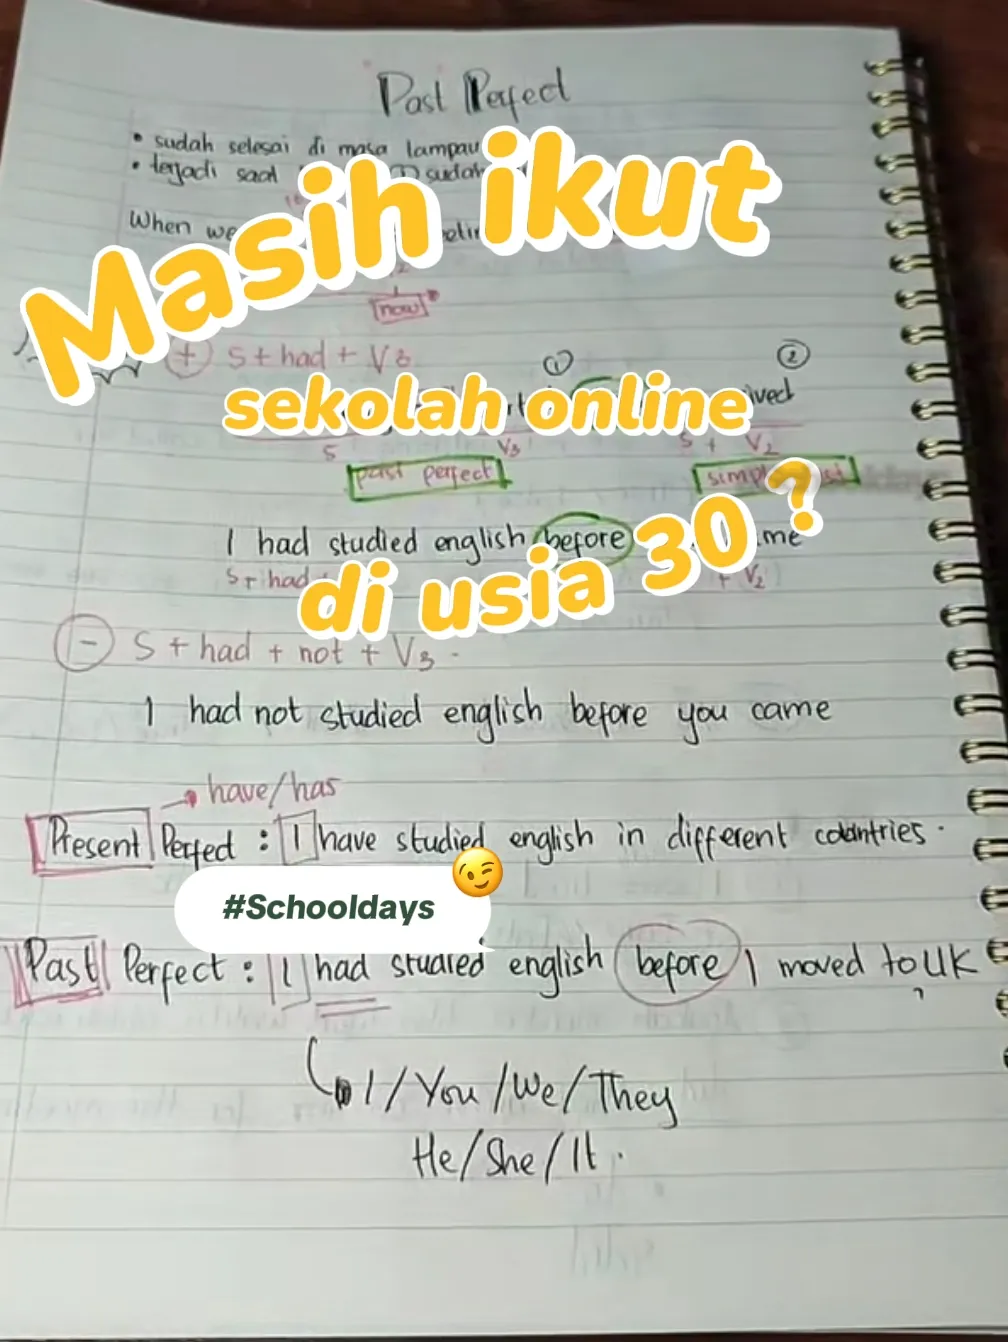 Past Perfect
• sudah selesai di masa lampau
• terjadi saat sudah
When we
Masih ikut
now
+ S + had + V3
① ②
sekolah online
S V3 S + V2
past perfect
di usia 30 ?
I had studied english before me
S + had + V2
- S + had + not + V3 .
I had not studied english before you came
have/has
Present Perfect : I have studied english in different countries .
#Schooldays 😉
Past Perfect : I had studied english before I moved to UK
I/You/We/They
He/She/It .